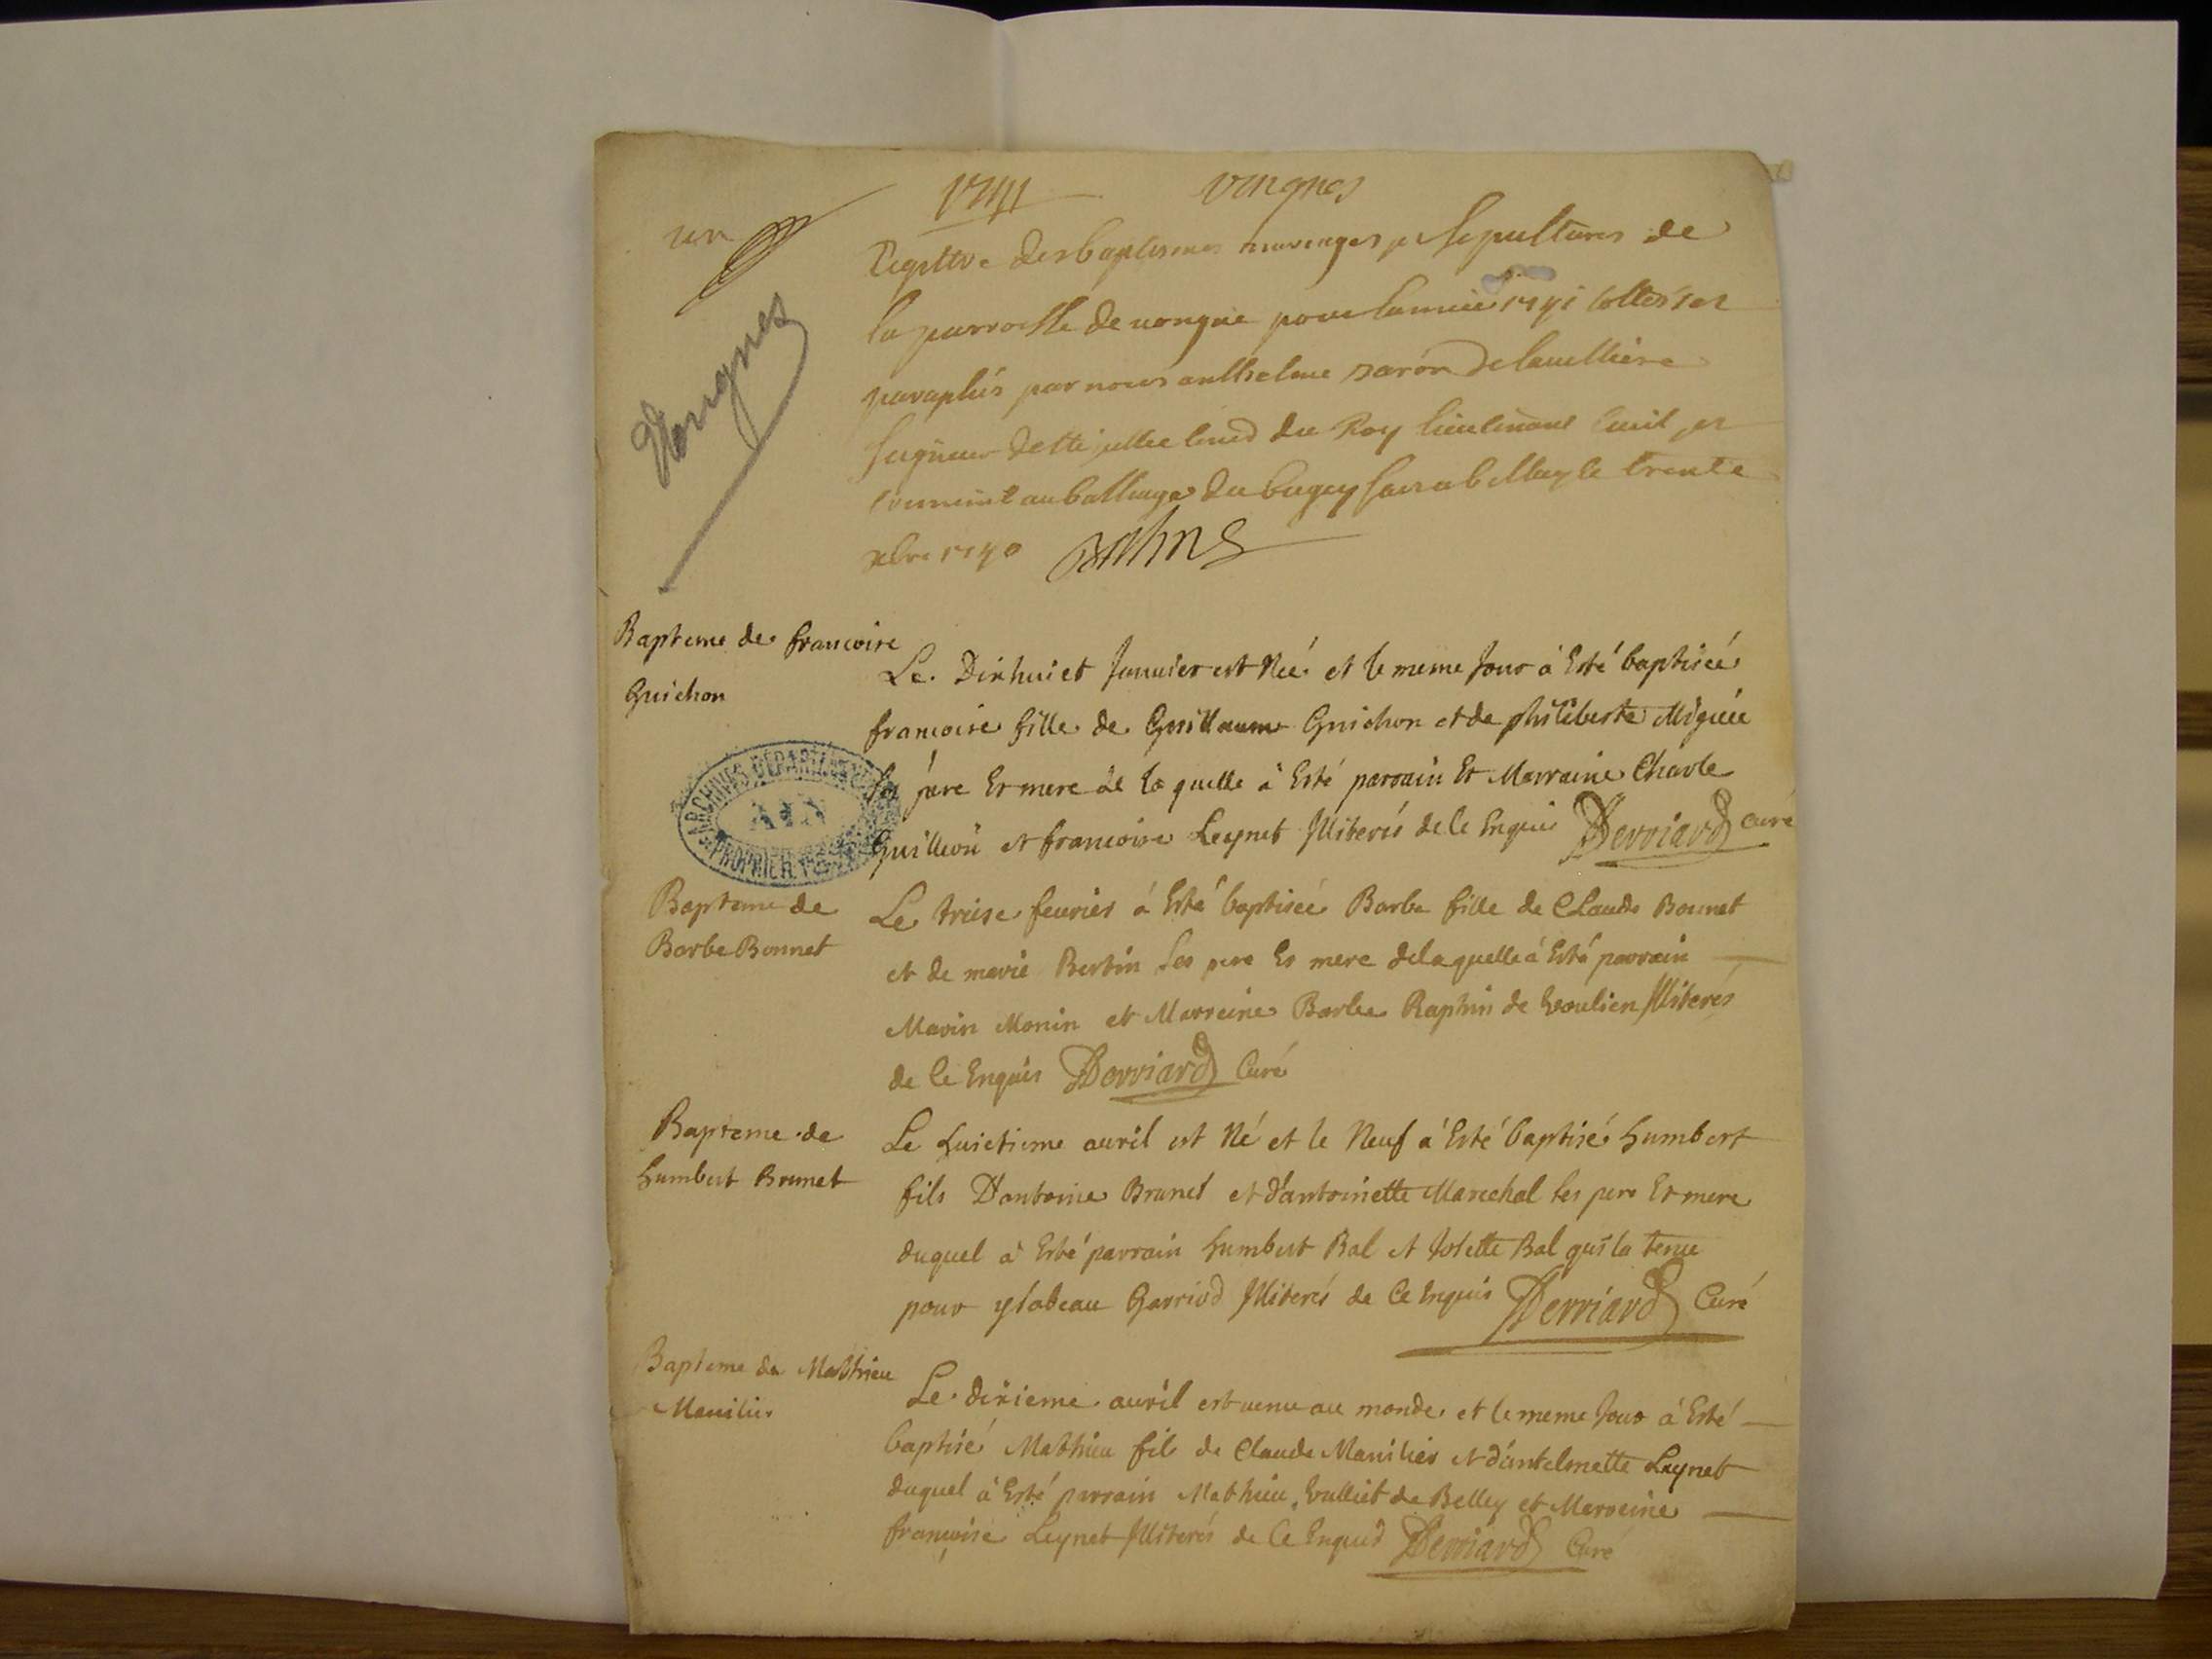 1741 vongnes
un
Vongnes
Registre des baptismes mariages et sepultures de
la parroisse de vongne pour lannée 1741 cottes et
paraphés par nous anthelme
seigneur du Roy lieutenant civil et
au balliage du bugey a belley le trente
xbre 1740
Bapteme de francoise
Guichon
Le Dixhuict Januier est Née et le meme Jour à Esté baptiseé
francoise fille de Guillaume Guichon et de philiberte Migieu
ses pere Et mere de la quelle à Esté parrain Et Marraine Charle
Guilleon et francoise Leynet Illiterés de le Enquis Derriard Curé
ARCHIVES DEPARTEMENTALES
AIN
PROPRIETE PUBLIQUE
Bapteme de
Barbe Bonnet
Le treise feurier à Esté baptiseé Barbe fille de Claude Bonnet
et de marie Bertin ses pere Et mere delaquelle à Esté parrain
Marin Monin et Marreine Barbe Raphin de Ceoulien Illiterés
de le Enquis Derriard Curé
Bapteme de
humbert Brunet
Le huictieme auril est Né et le Neuf à Esté baptisé humbert
fils D'antoine Brunet et d'antoinette Marechal ses pere Et mere
duquel à Esté parrain humbert Bal et Josette Bal qui la tenu
pour ysabeau Garriod Illiterés de Ce Enquis Derriard Curé
Bapteme de Matthieu
Manilier
Le dixieme auril est venu au monde et le meme Jour à Esté
baptisé Mathieu fils de Claude Manilier et d'antelmette Leynet
duquel à Esté parrain Mathieu Vulliet de Belley et Marreine
francoise Leynet Illiterés de Ce Enquis Derriard Curé